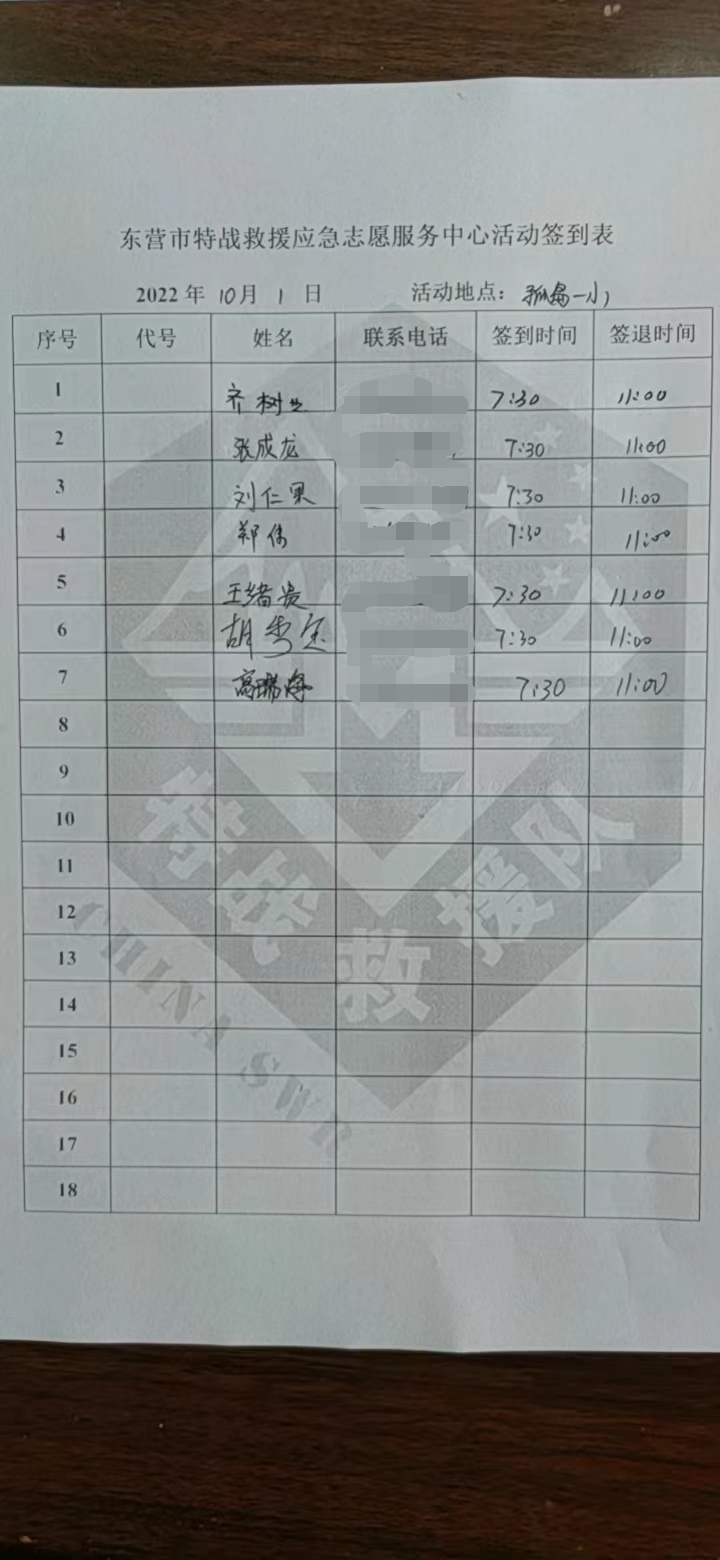 东营市特战救援应急志愿服务中心活动签到表
2022 年 10月 1 日 活动地点: 孤岛一小
序号 代号 姓名 联系电话 签到时间 签退时间
1 齐树 7:30 11:00
2 张成龙 7:30 11:00
3 刘仁果 7:30 11:00
4 郑伟 7:30 11:00
5 王绪贵 7:30 11:00
6 胡秀 7:30 11:00
7 高瑞海 7:30 11:00
8
9
10
11
12
13
14
15
16
17
18
特战救援队
CHINA SWR